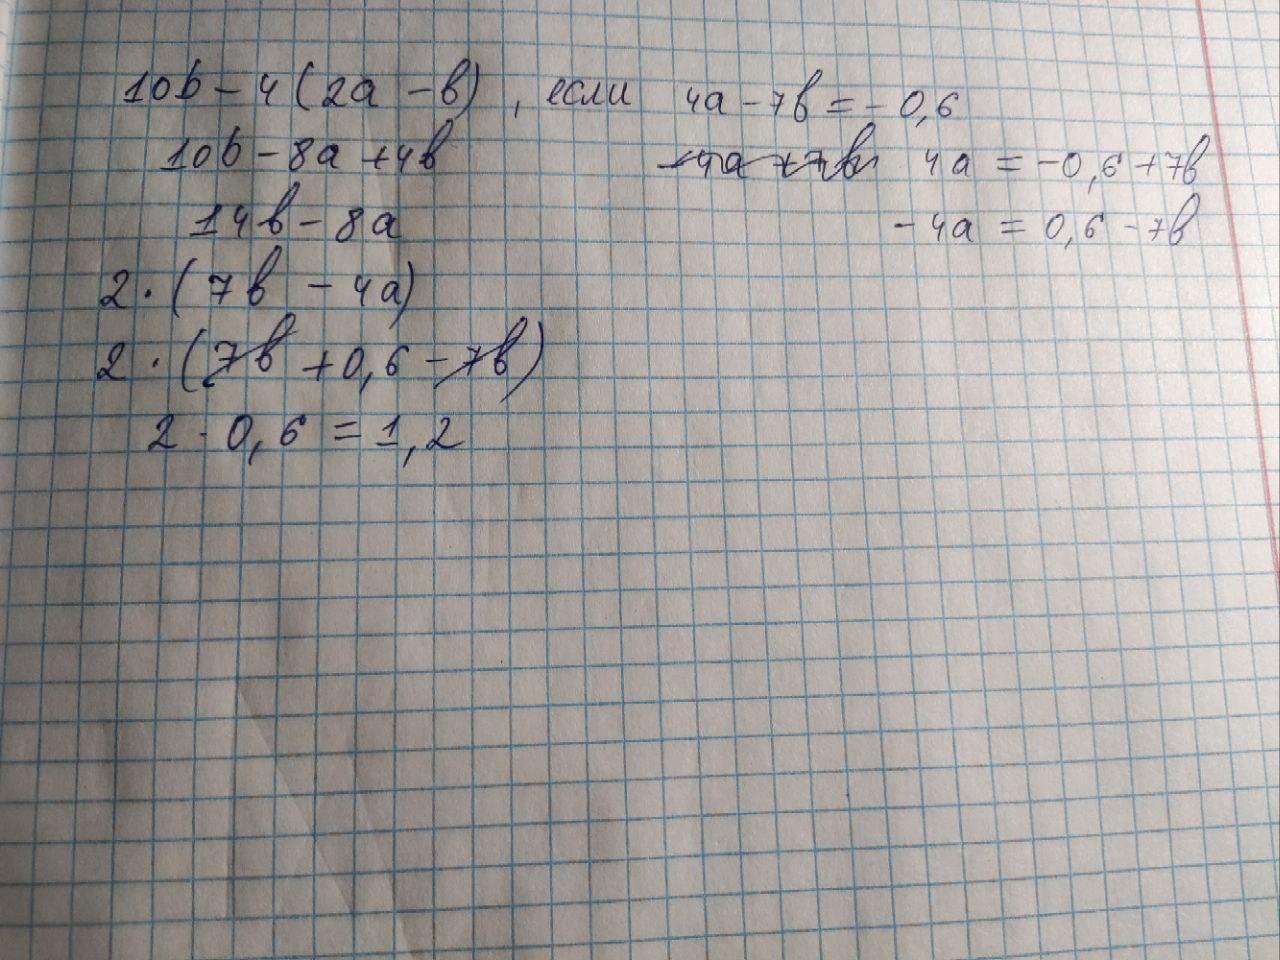 10b - 4(2a - b), если 4a - 7b = - 0,6
10b - 8a + 4b -4a + 7b 4a = -0,6 + 7b
14b - 8a - 4a = 0,6 - 7b
2 · (7b - 4a)
2 · (7b + 0,6 - 7b)
2 · 0,6 = 1,2